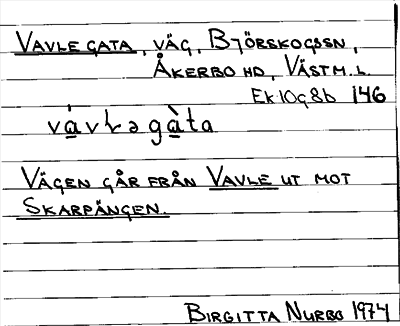 VAVLE GATA, VÄG, BJÖRSKOGSSN,
ÅKERBO HD, VÄSTM. L.
EK 10g8b 146
vávḷəgàta
VÄGEN GÅR FRÅN VAVLE UT MOT
SKARPÄNGEN.
BIRGITTA NURBO 1974